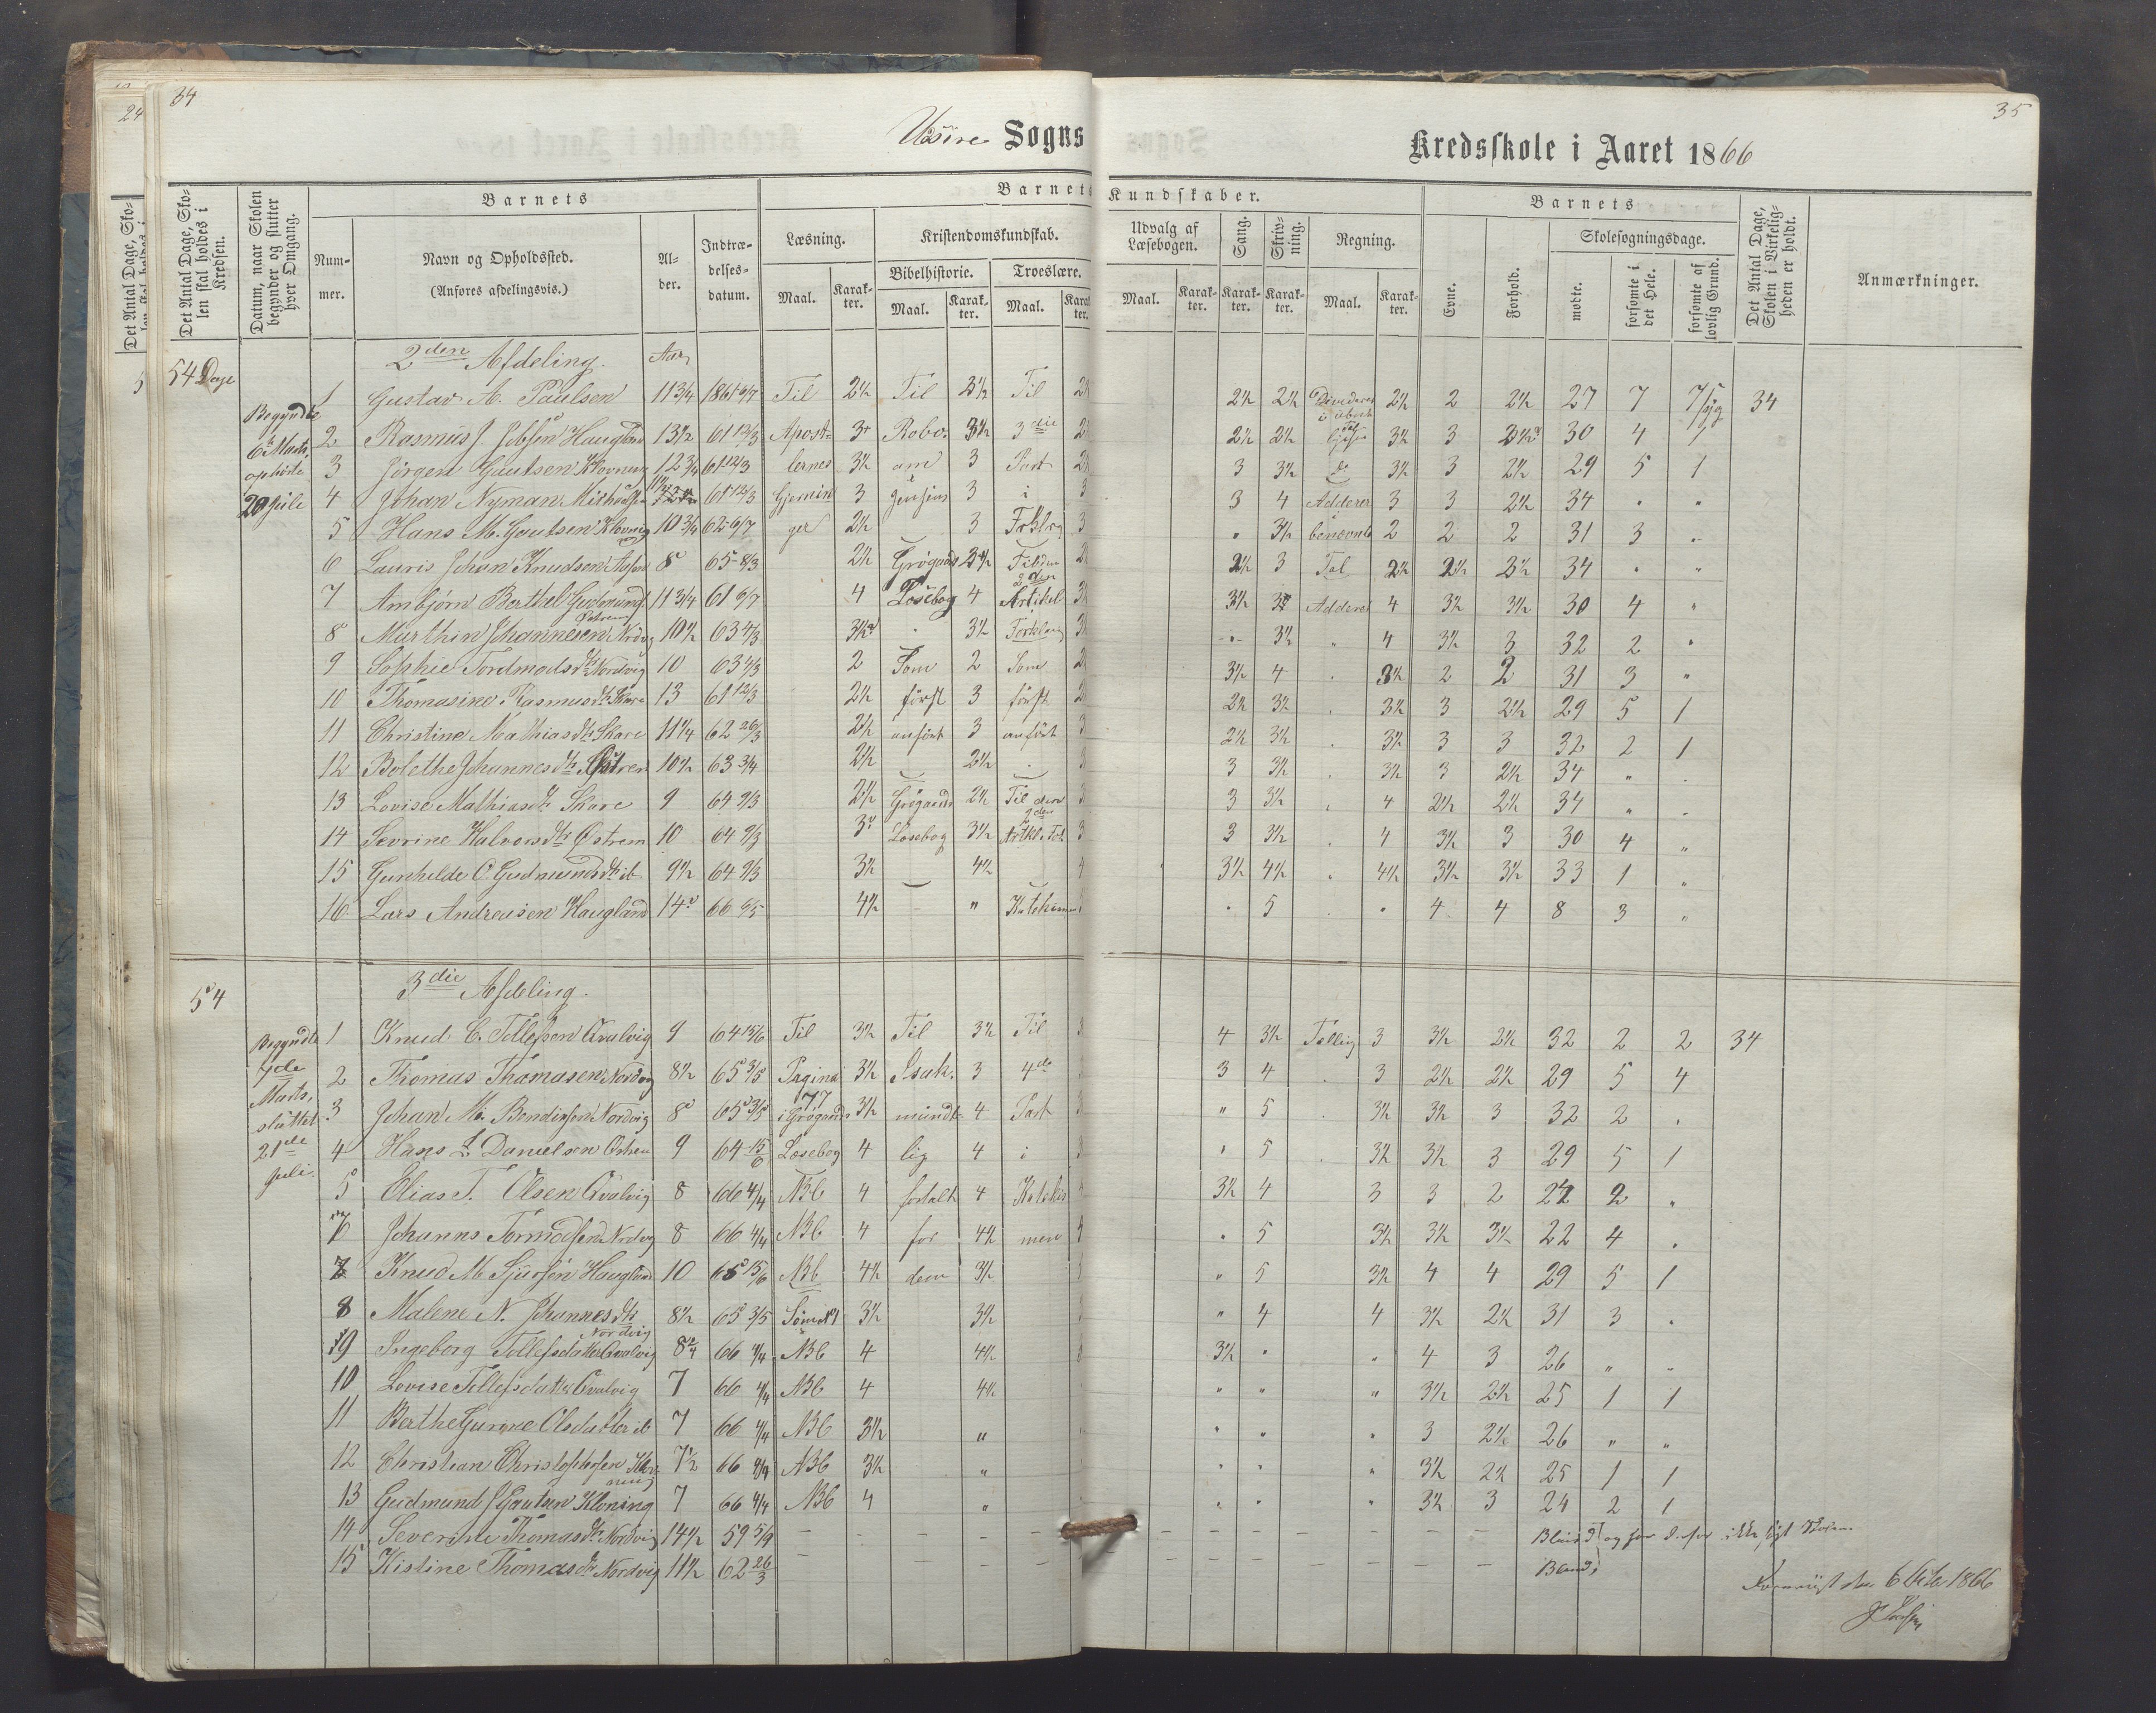 34
Utsire Sogns
Kredsskole i Aaret 1866
35
24
Det Antal Dage, Sko-
Det Antal Dage, Skolen skal holdes i Kredsen.
Datum, naar Skolen begynder og slutter hver Omgang.
Barnets
Nummer.
Navn og Opholdssted.
(Anføres afdelingsvis.)
Alder.
Indtrædelsesdatum.
Barnets Kundskaber.
Læsning.
Kristendomskundskab.
Bibelhistorie.
Troeslære.
Maal.
Karakter.
Maal.
Karakter.
Maal.
Karakter.
Udvalg af Læsebogen.
Sang.
Skrivning.
Regning.
Maal.
Karakter.
Karakter.
Karakter.
Maal.
Karakter.
Barnets
Evne.
Forhold.
Skolesøgningsdage.
mødte.
forsømte i det Hele.
forsømte af lovlig Grund.
Det Antal Dage, Skolen i Virkeligheden er holdt.
Anmærkninger.
54 Dage
2den Afdeling.
Aar
1 Gustav A. Paulsen 11 3/4 1861 9/7 Til 2½ Til 3½ Til 2½ 2½ 2 2½ 27 7 34
Begyndte
2 Rasmus J. Haugland 13½ 61 12/3 Apost- 3+ Robo- 3½ 3die 2½ 2½ 3½ 3 30 4 1
3 Jörgen Gautsen Klovning 12 3/4 61 12/3 lernes 3½ am 3 Part 3 3½ do 3½ 3 2½ 29 5 1
ophörte
20 Juli 4 Johan Nyman 61 12/3 Gjernin 3 3 i 3 3 4 Adderer 3 3 2½ 34 " "
5 Hans M. Gautsen Klovning 10 3/4 62 6/7 ger 2½ 3 Frklrg 3 " 3½ benævnte 2 2 2 31 3 "
6 Lauris Johan Knudsen 8 65 8/3 2½ Grøgaards Til den 2½ 3 Tal 2½ 2½ 34 " "
7 Ambjørn Berthel Gudmunds. 11 3/4 61 9/7 4 Læsebog 4 2den Artikel 3½ Adderer 4 3½ 3½ 30 4 "
8 Marthin Johannesen 10½ 63 4/3 3½ 3½ Forklaring 3½ " 4 3½ 3 32 2 "
9 Sophie Tordmodsdtr Nordvig 10 63 4/3 2 Som 2 Som 3½ 4 3½ 2 2 31 3 "
10 Thomasine Rasmusdtr Skare 13 61 12/3 2½ först 3 först 2½ 3½ 3½ 3 2½ 29 5 1
11 Christine Mathiasdtr Skare 11¼ 62 26/3 2½ anfört 3 anfört 3 2½ 3½ 3½ 3 3 32 2 1
12 Bolethe Johannesdtr Østrem 10½ 63 3/4 2½ 2½ 3 3½ 3½ 3 2½ 34 "
13 Lovise Mathiasdtr Skare 9 64 9/3 2½ Grøgaards 2½ Til den 3 3½ 4 2½ 2½ 34 "
14 Sevrine Halvorsdtr Østrem 10 64 9/3 3 Læsebog 3½ 2den 3 3½ 4 3½ 3 30 4 "
15 Gunhilde C. Gudmundsdtr ib 9½ 64 9/3 3½ 4½ 4 3½ 4½ 4½ 3½ 3½ 33 1 "
16 Lars Andreasen Haugland 14 66 4½ " " 5 " 4 4 8 3 "
54
3die Afdeling.
1 Knud C. Tollefsen Qvalvig 9 64 15/6 Til 3½ Til 3½ Til 4 3½ Telling 3 3½ 2½ 32 2 2 34
Begyndte
7de
2 Thomas Thomasen Nordvig 8½ 65 3/5 Pagina 3½ Isak. 3 4de 3 4 3 2½ 2½ 29 5 4
Marts,
77
3 Johan M. Bendixsen Nordvig 8 65 3/5 i Grøgaards 3½ mündt- 4 Part " 5 3½ 3½ 3 32 2 "
sluttet
21de
4 Hans L. Danielsen 9 64 15/6 Læsebog 4 lig 4 i " 5 3½ 3½ 3 29 5 1
Juli.
5 Elias T. Olsen Qvalvig 8 66 4/4 ABC 4 fortalt 4 Katekis 3½ 4 3 3 2 2 "
6 Johanns Tormodsen Nordvig 8 66 4/4 ABC 4 for 4½ men " 5 3½ 3½ 3½ 22 4 "
7 Knud M. Sjursen Haugland 10 65 15/6 ABC 4½ dem 3½ " 5 3½ 4 4 29 5 1
8 Malene N. Johannesdtr Nordvig 8½ 65 3/5 3½ 3½ " 4 4 3½ 2½ 31 3 "
9 Ingeborg Tollefsdatter Qvalvig 66 4/4 ABC 4 4½ 3½ " " 4 3 26 " "
10 Lovise Tollefsdatter Qvalvig 7 66 4/4 ABC 4 4½ " " " 3½ 2½ 25 1 1
11 Berthe Gurine Olsdatter ib 7 66 4/4 ABC 3½ " " " " 3 2½ 26 " "
12 Christian Christophersen Klovning 7½ 66 4/4 ABC 3½ " " " " 3½ 2½ 25 1 1
13 Gudmund J. Gautsen Kloning 7 66 4/4 ABC 4 " " " " 3½ 3 24 2 1
14 Severine Thomasdtr Nordvig 14½ 59 5/9 — — Blind og har derfor ikke søgt Skolen
15 Kistine Thomasdtr Nordvig 11½ 62 26/3 — — Blind
6 1866